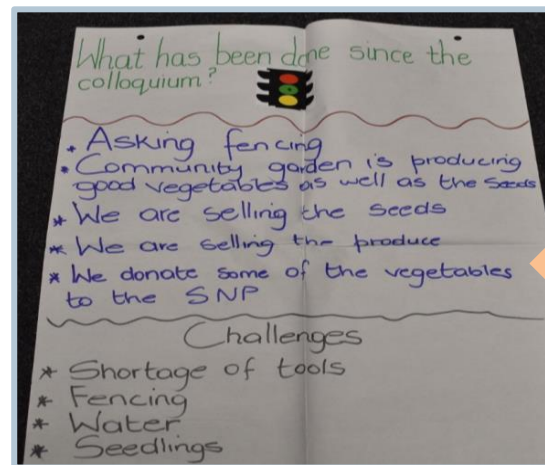 What has been done since the
colloquium?
• Asking fencing
• Community garden is producing
good vegetables as well as the seeds
* We are selling the seeds
* We are selling the produce
* We donate some of the vegetables
to the SNP
Challenges
* Shortage of tools
* Fencing
* Water
* Seedlings